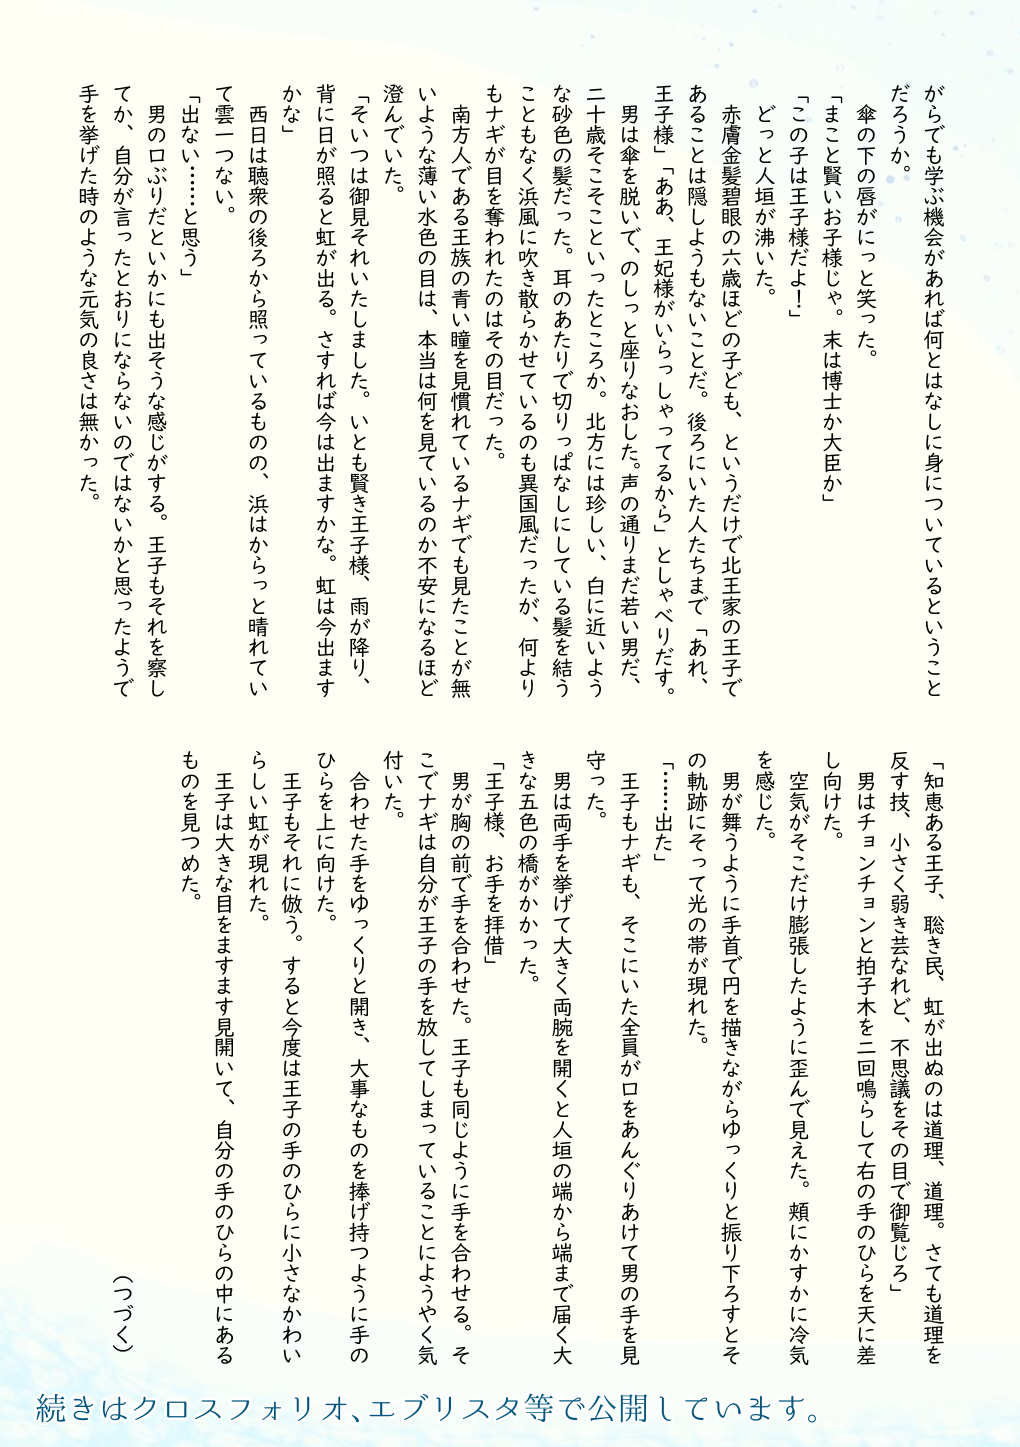 がらでも学ぶ機会があれば何とはなしに身についているということ
だろうか。
傘の下の唇がにっと笑った。
「まこと賢いお子様じゃ。末は博士か大臣か」
「この子は王子様だよ！」
どっと人垣が沸いた。
赤膚金髪碧眼の六歳ほどの子ども、というだけで北王家の王子で
あることは隠しようもないことだ。後ろにいた人たちまで「あれ、
王子様」「ああ、王妃様がいらっしゃってるから」としゃべりだす。
男は傘を脱いで、のしっと座りなおした。声の通りまだ若い男だ、
二十歳そこそこといったところか。北方には珍しい、白に近いよう
な砂色の髪だった。耳のあたりで切りっぱなしにしている髪を結う
こともなく浜風に吹き散らかせているのも異国風だったが、何より
もナギが目を奪われたのはその目だった。
南方人である王族の青い瞳を見慣れているナギでも見たことが無
いような薄い水色の目は、本当は何を見ているのか不安になるほど
澄んでいた。
「そいつは御見それいたしました。いとも賢き王子様、雨が降り、
背に日が照ると虹が出る。さすれば今は出ますかな。虹は今出ます
かな」
西日は聴衆の後ろから照っているものの、浜はからっと晴れてい
て雲一つない。
「出ない……と思う」
男の口ぶりだといかにも出そうな感じがする。王子もそれを察し
てか、自分が言ったとおりにならないのではないかと思ったようで
手を挙げた時のような元気の良さは無かった。
「知恵ある王子、聡き民、虹が出ぬのは道理、道理。さても道理を
反す技、小さく弱き芸なれど、不思議をその目で御覧じろ」
男はチョンチョンと拍子木を二回鳴らして右の手のひらを天に差
し向けた。
空気がそこだけ膨張したように歪んで見えた。頬にかすかに冷気
を感じた。
男が舞うように手首で円を描きながらゆっくりと振り下ろすとそ
の軌跡にそって光の帯が現れた。
「……出た」
王子もナギも、そこにいた全員が口をあんぐりあけて男の手を見
守った。
男は両手を挙げて大きく両腕を開くと人垣の端から端まで届く大
きな五色の橋がかかった。
「王子様、お手を拝借」
男が胸の前で手を合わせた。王子も同じように手を合わせる。そ
こでナギは自分が王子の手を放してしまっていることにようやく気
付いた。
合わせた手をゆっくりと開き、大事なものを捧げ持つように手の
ひらを上に向けた。
王子もそれに倣う。すると今度は王子の手のひらに小さなかわい
らしい虹が現れた。
王子は大きな目をますます見開いて、自分の手のひらの中にある
ものを見つめた。
（つづく）
続きはクロスフォリオ、エブリスタ等で公開しています。